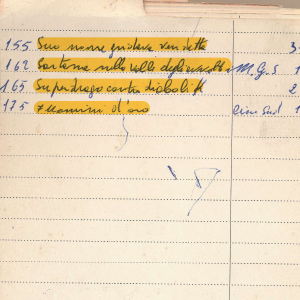 155 Suo nome gridava vendetta 3
162 Sartana nella valle degli avvoltoi M.G.S 1
165 Superdrago contro diabolik 2
175 7 uomini d'oro Cin Sud 1